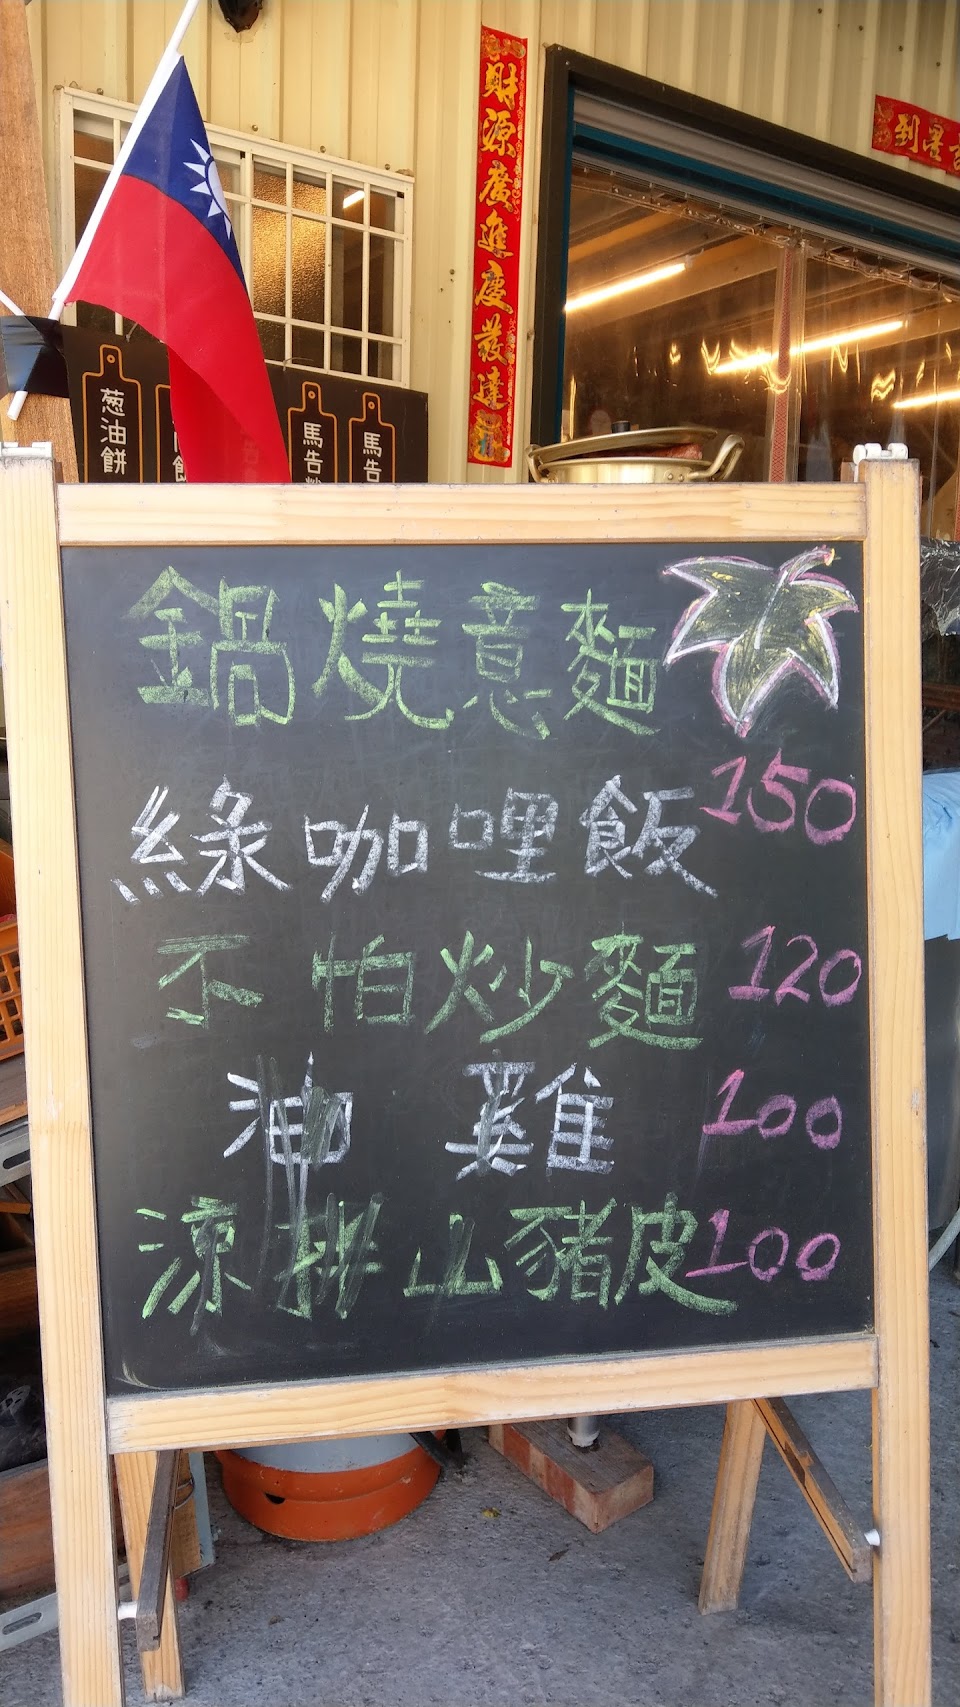 財源廣進慶發達
到星吉
葱油餅
馬告
馬告
鍋燒意麵
綠咖哩飯 150
不怕炒麵 120
油雞 100
涼拌山豬皮 100